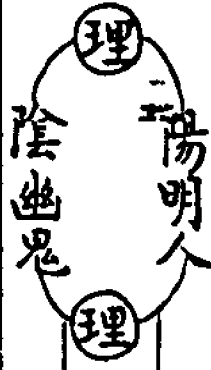 理
陽明人
陰幽鬼
理